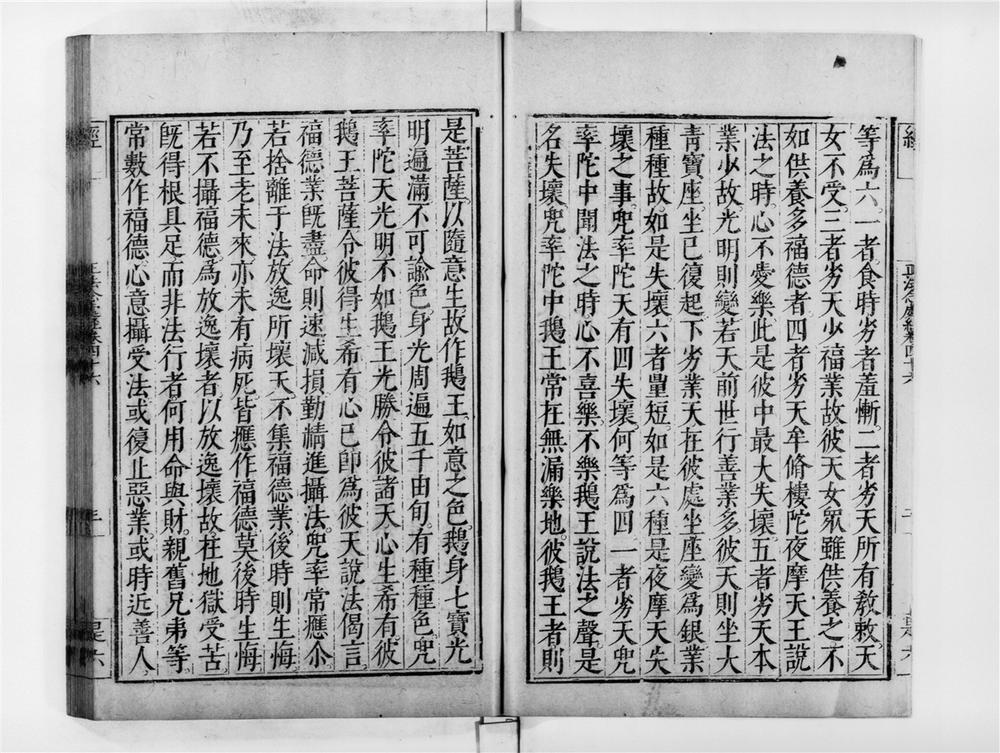 等爲六。一者食時劣者羞慚。二者劣天所有敎敕。天
女不受。三者劣天少福業故彼天女眾雖供養之不
如供養多福德者四者劣天牟脩樓陀夜摩天王說
法之時。心不愛樂此是彼中最大失壞五者劣天本
業少故光明則變若天前世行善業多彼天則坐大
青寶座。坐已復起。下劣業天在彼處坐座變爲銀業
種種故。如是失壞。六者量短。如是六種是夜摩天失
壞之事。兜率陀天有四失壞。何等爲四一者劣天兜
率陀中聞法之時心不喜樂不樂鵝王說法之聲是
名失壞。兜率陀中鵝王常在無漏樂地。彼鵝王者則
是菩薩。以隨意生故作鵝王。如意之色。鵝身七寶光
明遍滿。不可諭色。身光周遍五千由旬。有種種色。兜
率陀天光明不如鵝王光勝。令彼諸天心生希有。彼
鵝王菩薩令彼得生希有心已卽爲彼天說法偈言。
福德業旣盡。命則速減損。勤精進攝法。兜率常應尒
若捨離于法放逸所壞天不集福德業後時則生悔
乃至老未來亦未有病死。皆應作福德莫後時生悔
若不攝福德。爲放逸壞者以放逸壞故。在地獄受苦。
旣得根具足而非法行者何用命與財。親舊兄弟等。
常數作福德心意攝受法或復止惡業。或時近善人。
正法念處經卷四十六